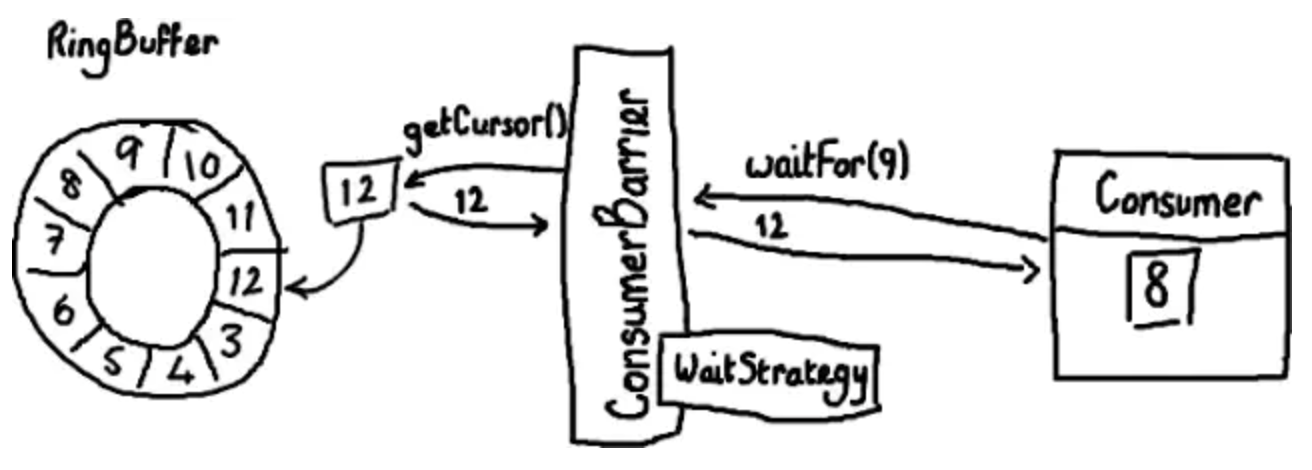 RingBuffer
9
10
8
11
7
12
6
3
5
4
12
getCursor()
12
ConsumerBarrier
WaitStrategy
waitFor(9)
12
Consumer
8